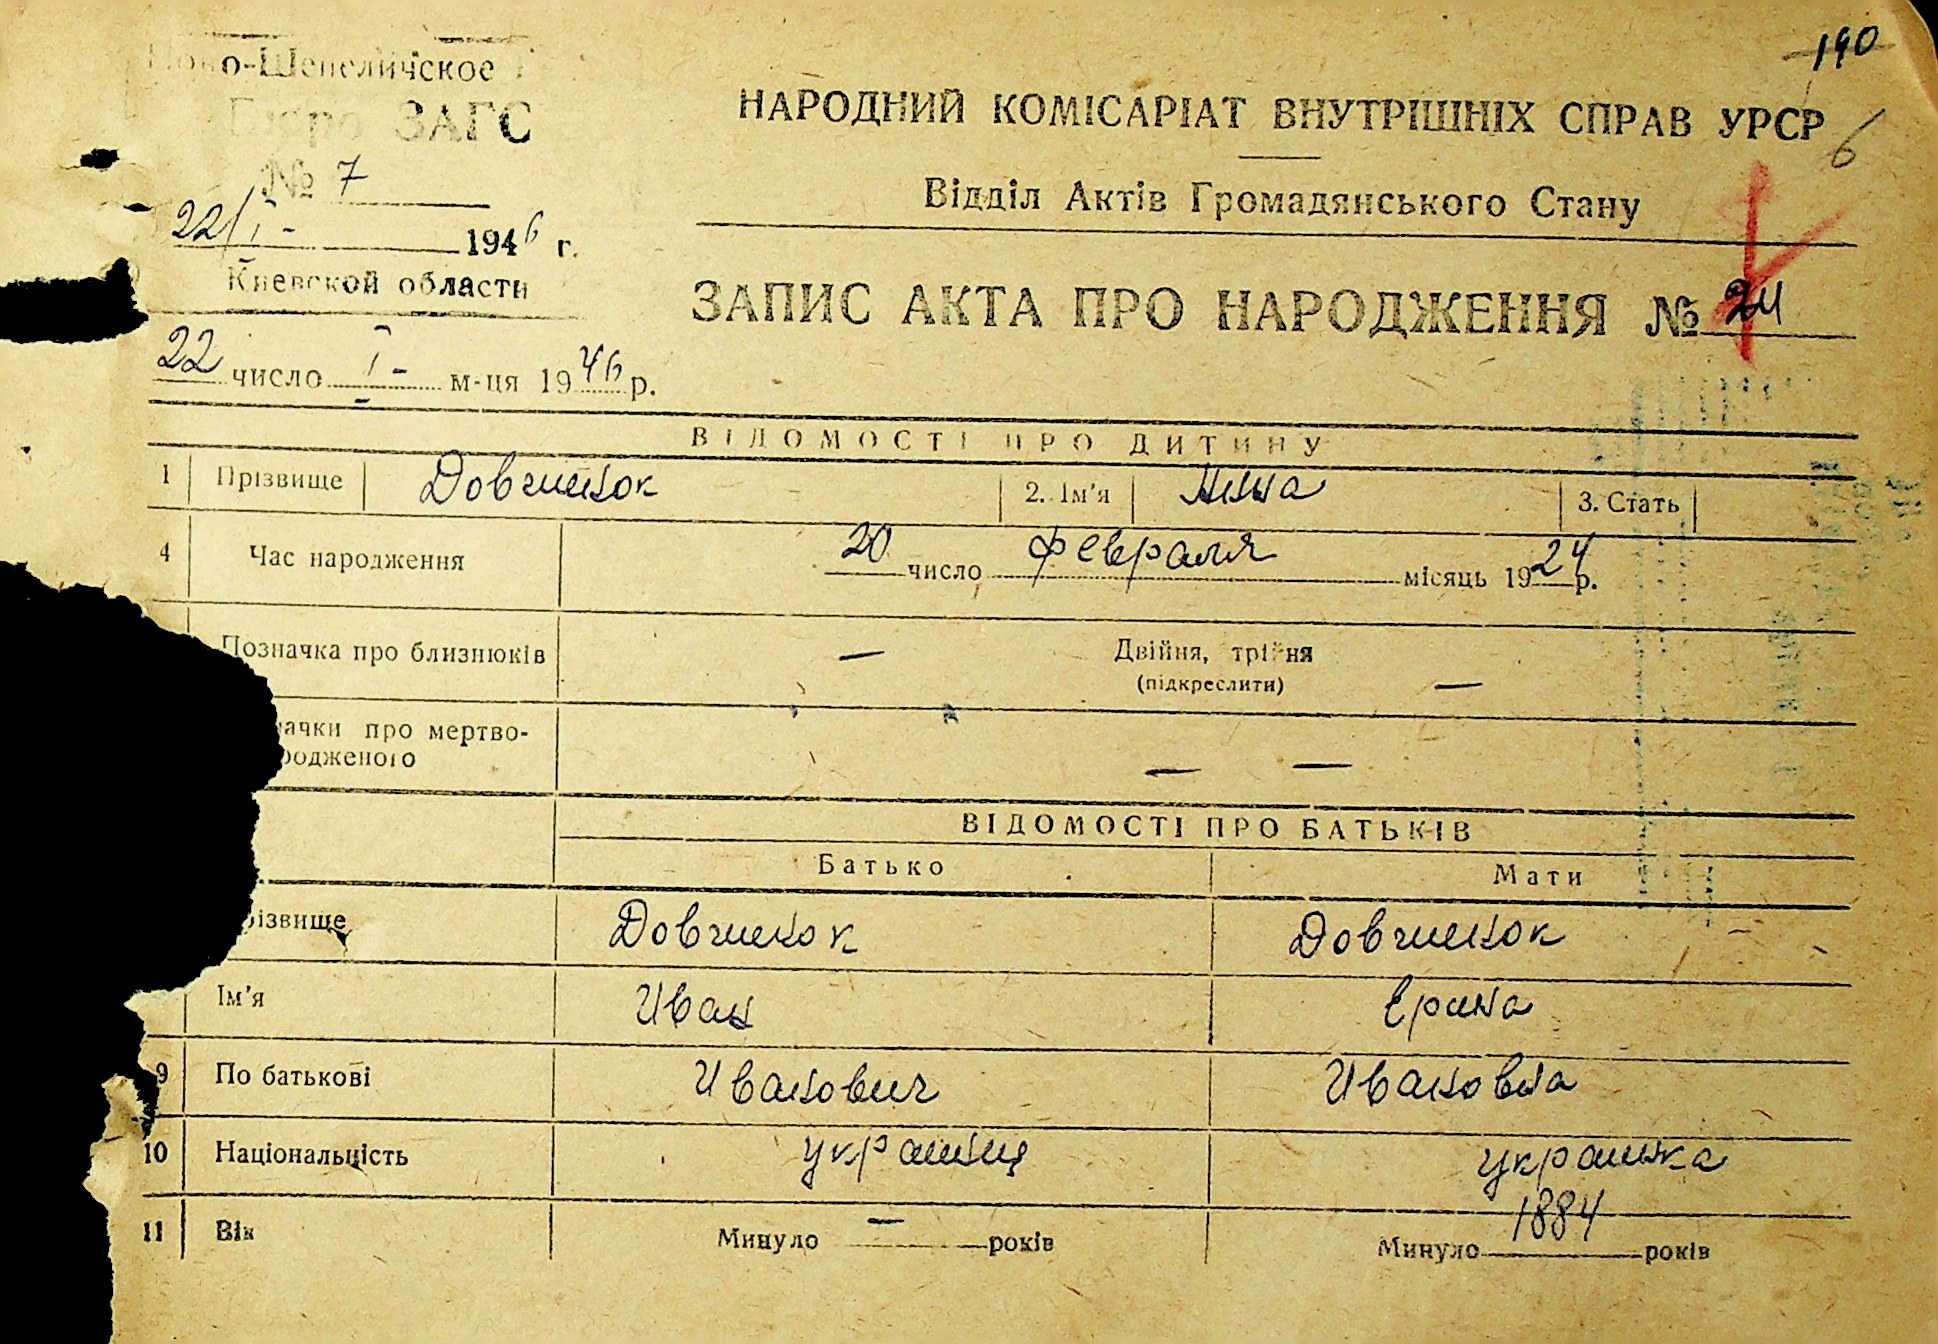 190
Ново-Шепеличское
Бюро ЗАГС
№ 7
22/I - 1946 г.
Киевской области
НАРОДНИЙ КОМІСАРІАТ ВНУТРІШНІХ СПРАВ УРСР
6
Відділ Актів Громадянського Стану
ЗАПИС АКТА ПРО НАРОДЖЕННЯ № 24
22 число I - м-ця 1946 р.
ВІДОМОСТІ ПРО ДИТИНУ
1 Прізвище Довгинок 2. Ім'я Нина 3. Стать
4 Час народження 20 число февраля місяць 1924 р.
Позначка про близнюків — Двійня, трійня —
(підкреслити)
ачки про мертво-
родженого — —
ВІДОМОСТІ ПРО БАТЬКІВ
Батько Мати
різвище Довгинок Довгинок
Ім'я Иван Ерина
9 По батькові Иванович Ивановна
10 Національність украинец украинка
11 Вік Минуло — років Минуло 1884 років